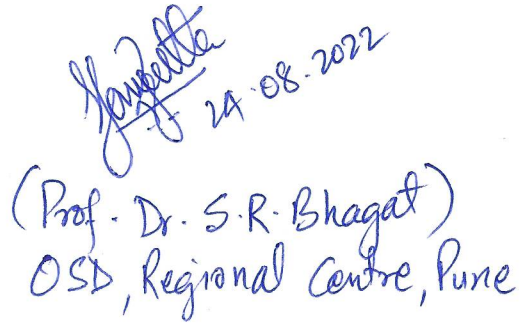 24.08.2022
(Prof. Dr. S.R. Bhagat)
OSD, Regional Centre, Pune